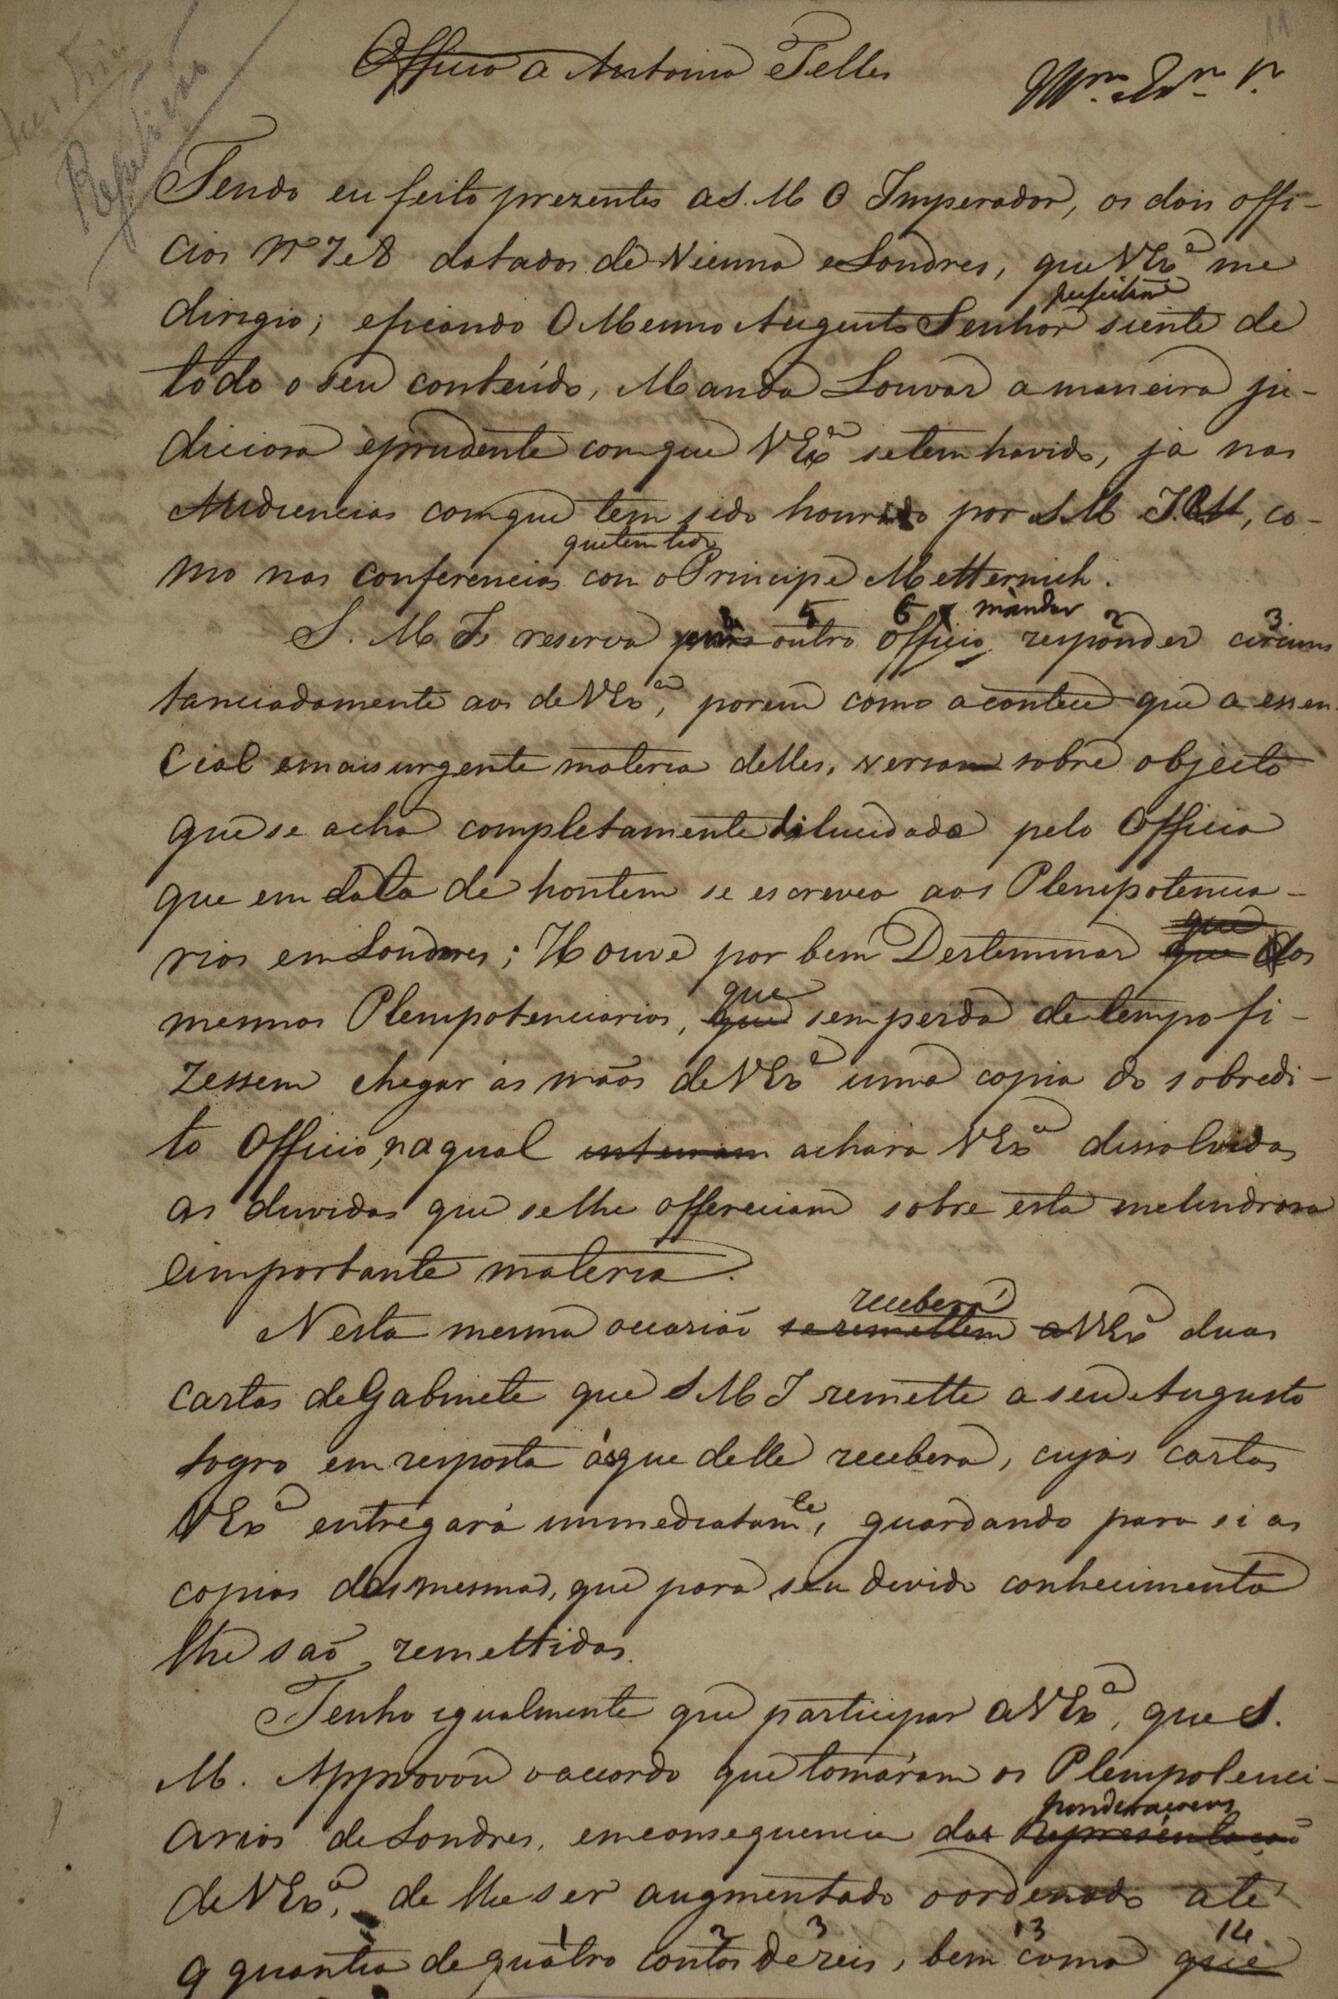 11
Officio a Antonio Telles
Illmo. Exmo. Sr.
Repetição
Tendo eu feito prezentes a S. M O Imperador, os dois offi-
cios Nos 7 e 8 datados de Vienna e Londres, que V Exa me
dirigio; e ficando O Mesmo Augusto Senhor sciente de
perfeitame
todo o seu conteúdo, Manda Louvar a maneira ju-
diciosa e prudente com que V Exa se tem havido, já nas
Audiencias com que tem sido honrado por S. M I. R A, co-
que tem tido
mo nas conferencias com o Principe Metternich.
4 5 6 1 mandar 2 3
S. M I. reserva para outro officio responder circuns
tanciadamente aos de V Exa, porem como acontece que a essen-
cial e mais urgente materia delles, versa sobre objecto
que se acha completamente dilucidado pelo Officio
que em data de hontem se escreveo aos Plenipotencia-
rios em Londres; Houve por bem Determinar que aos
que
mesmos Plenipotenciarios, que sem perda de tempo fi-
que
zessem chegar ás mãos de V Exa uma copia do sobredi-
to Officio, na qual achará V Exa dissolvidas
as duvidas que se lhe offereciam sobre esta melindrosa
e importante materia.
receberá
Nesta mesma occasião se remettem a V Exa duas
cartas de Gabinete que S M I remette a seu Augusto
Sogro em resposta ás que delle recebera, cujas cartas
V Exa entregará immediatamte, guardando para si as
copias das mesmas, que para seu devido conhecimento
lhe saõ remettidas.
Tenho igualmente que participar a V Exa, que S.
M. Approvou o accordo que tomáram os Plenipotenci-
arios de Londres, em consequencia das Representação
ponderacoens
de V Exa, de lhe ser augmentado o ordenado até
1 2 3 13 14
a quantia de quatro contos de reis, bem como que